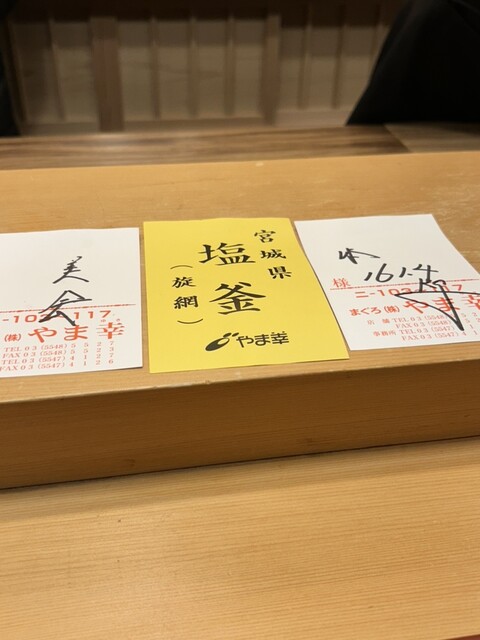 美
会
-102 117
(株)やま幸
TEL03(5548)5227
FAX03(5548)5223
TEL03(5547)4127
FAX03(5547)4126
宮城県
塩釜
(旋網)
やま幸
様
161.4
ニ-102 117
まぐろ(株)やま幸
店舗 TEL03(5548)
FAX03(5548)
事務所 TEL03(5547)
FAX03(5547)